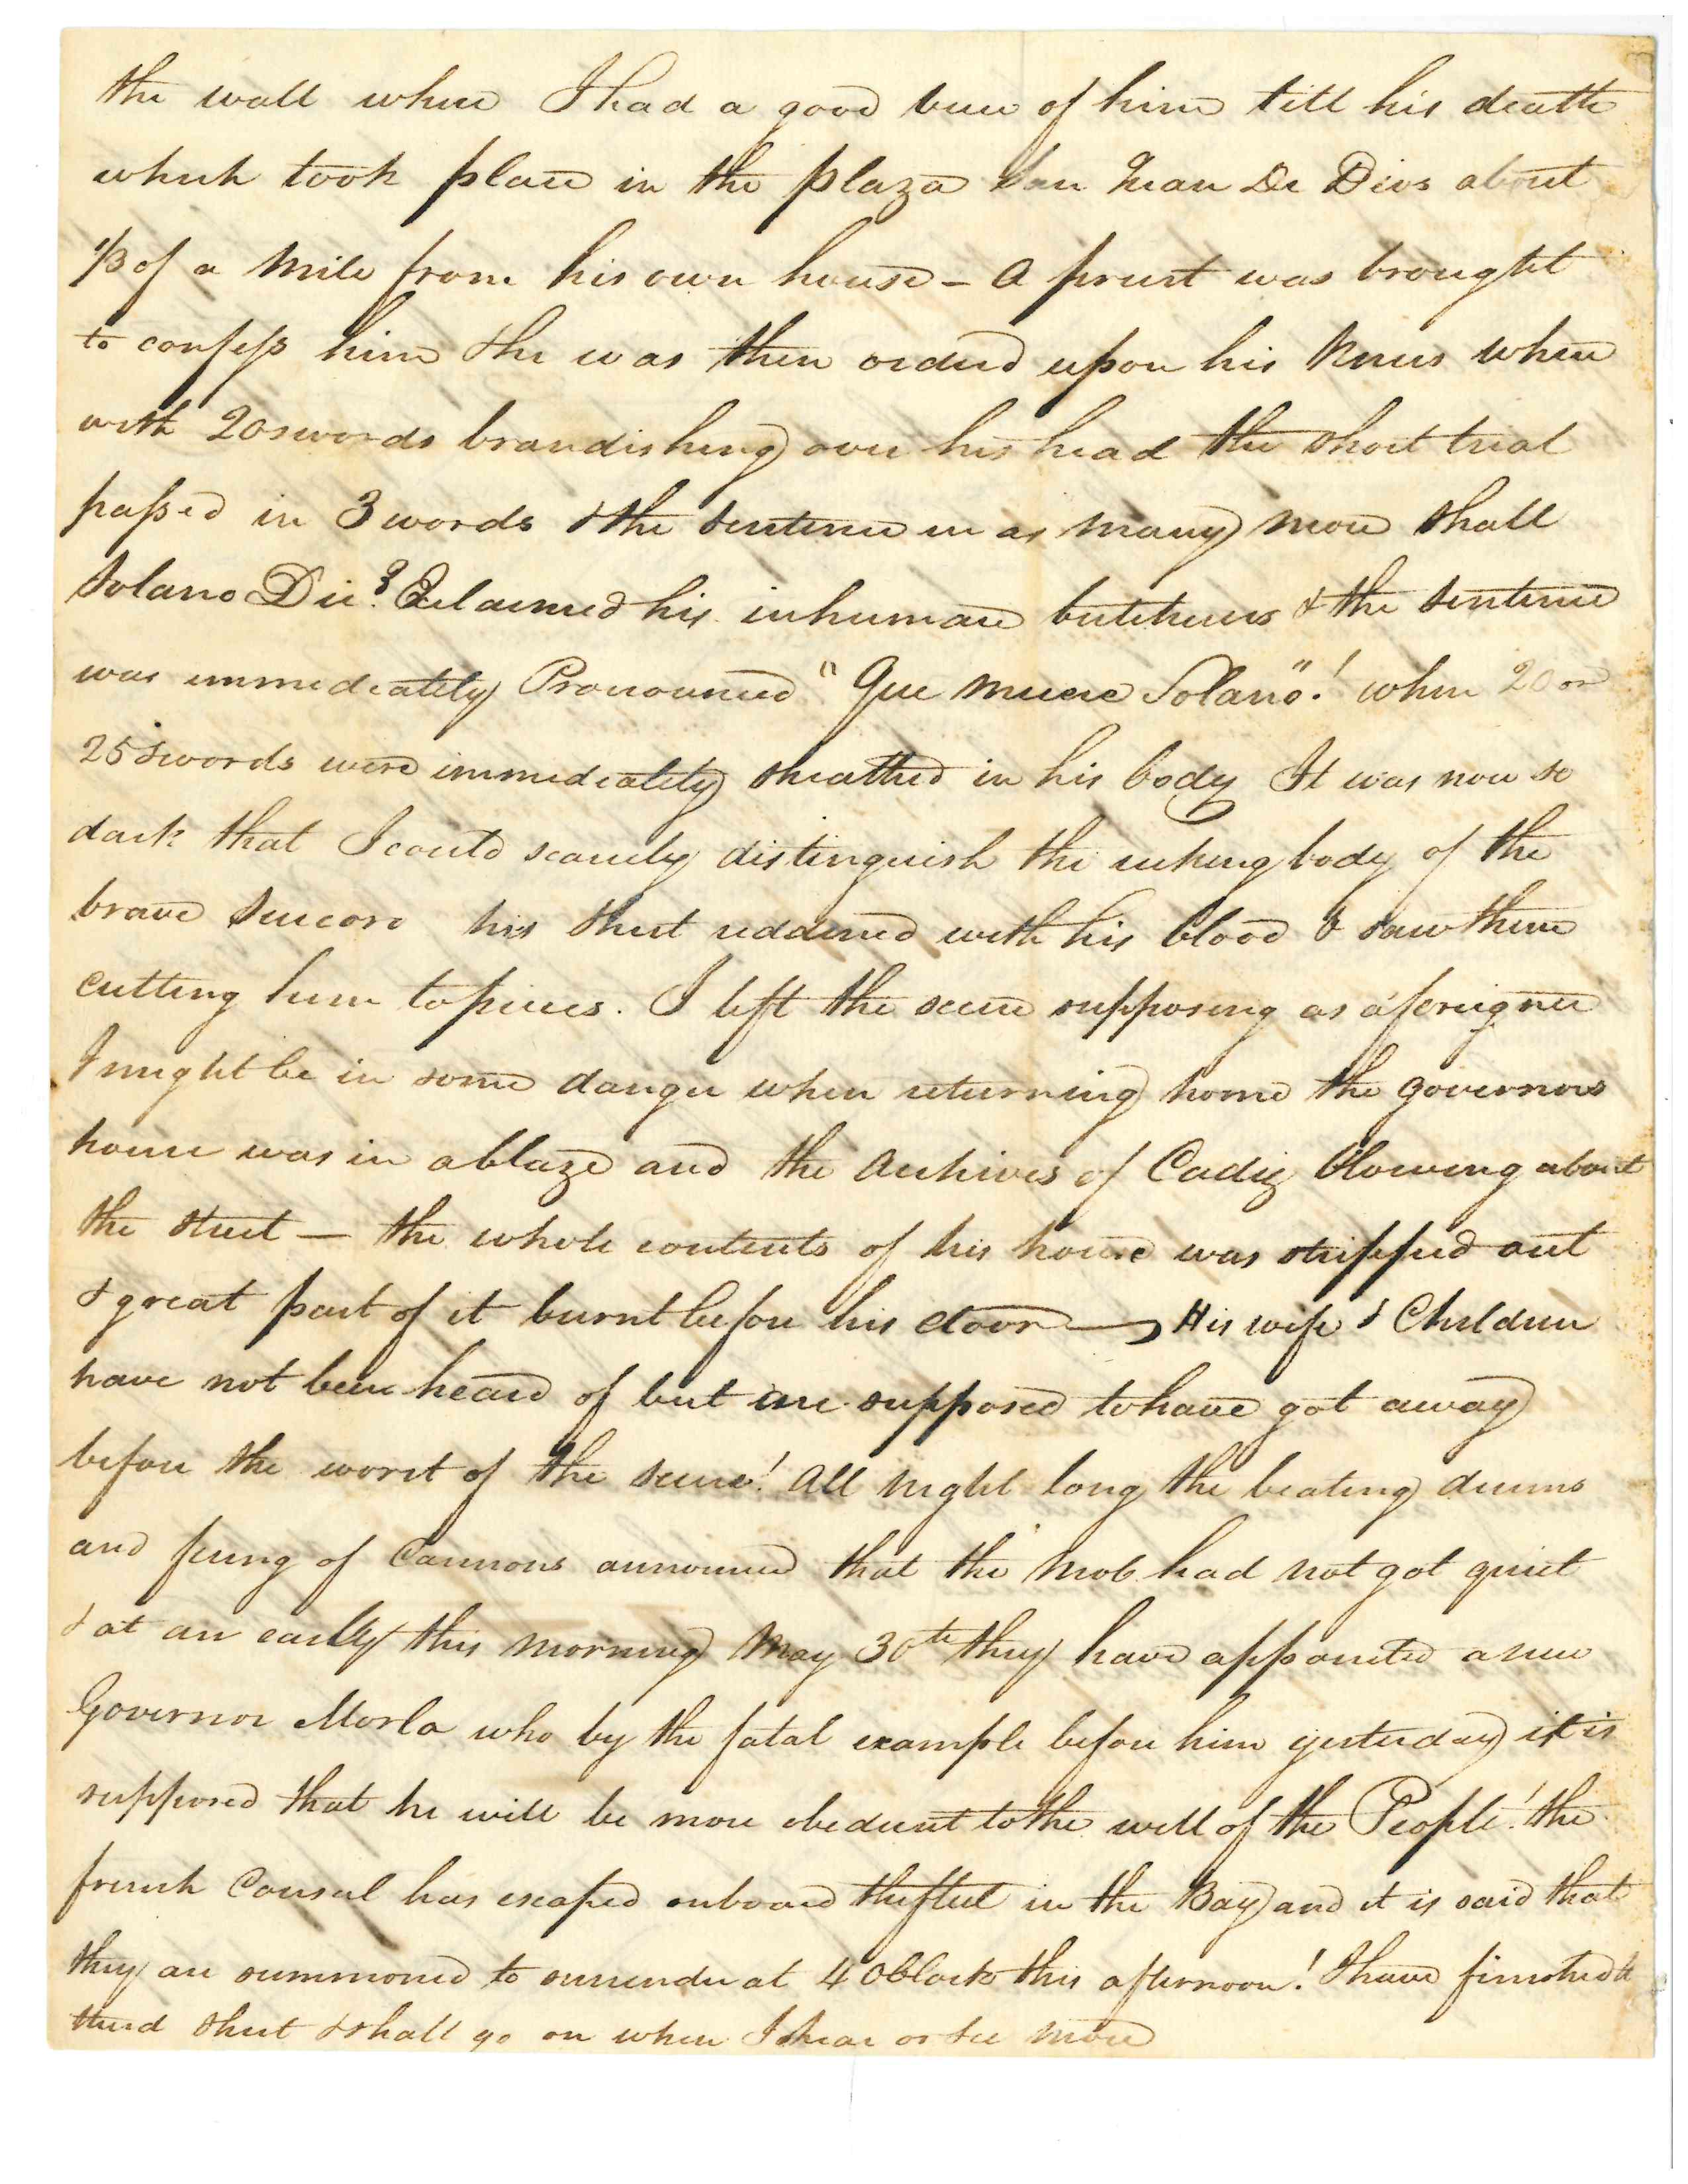 the wall where I had a good view of him till his death
which took place in the plaza San Juan De Dios about
1/3 of a mile from his own house - A priest was brought
to confess him & he was then orderd upon his knees when
with 20 swords brandishing over his head the short trial
passed in 3 words & the sentence in as many more Shall
Solano Die? Exclaimed his inhuman butchers & the sentence
was immediately Pronounced "Que muere Solano"! when 20 or
25 swords were immediately sheathed in his body It was now so
dark that I could scarcely distinguish the reking body of the
brave his shirt reddened with his blood & saw them
cutting him to pieces. I left the scene supposing as a foreigner
I might be in some danger when returning home the governors
house was in a blaze and the Archives of Cadiz blowing about
the street — the whole contents of his house was stripped out
& great part of it burnt before his door — His wife & Children
have not been heard of but are supposed to have got away
before the worst of the scene! All night long the beating drums
and firing of Cannons announced that the mob had not got quiet
& at an early this morning May 30th they have appointed a new
Governor Morla who by the fatal example before him yesterday it is
supposed that he will be more obedient to the will of the People! the
french Consul has escaped onboard the fleet in the Bay and it is said that
they are summoned to surrender at 4 oClock this afternoon! I have finished
third sheet & shall go on when I hear or see more